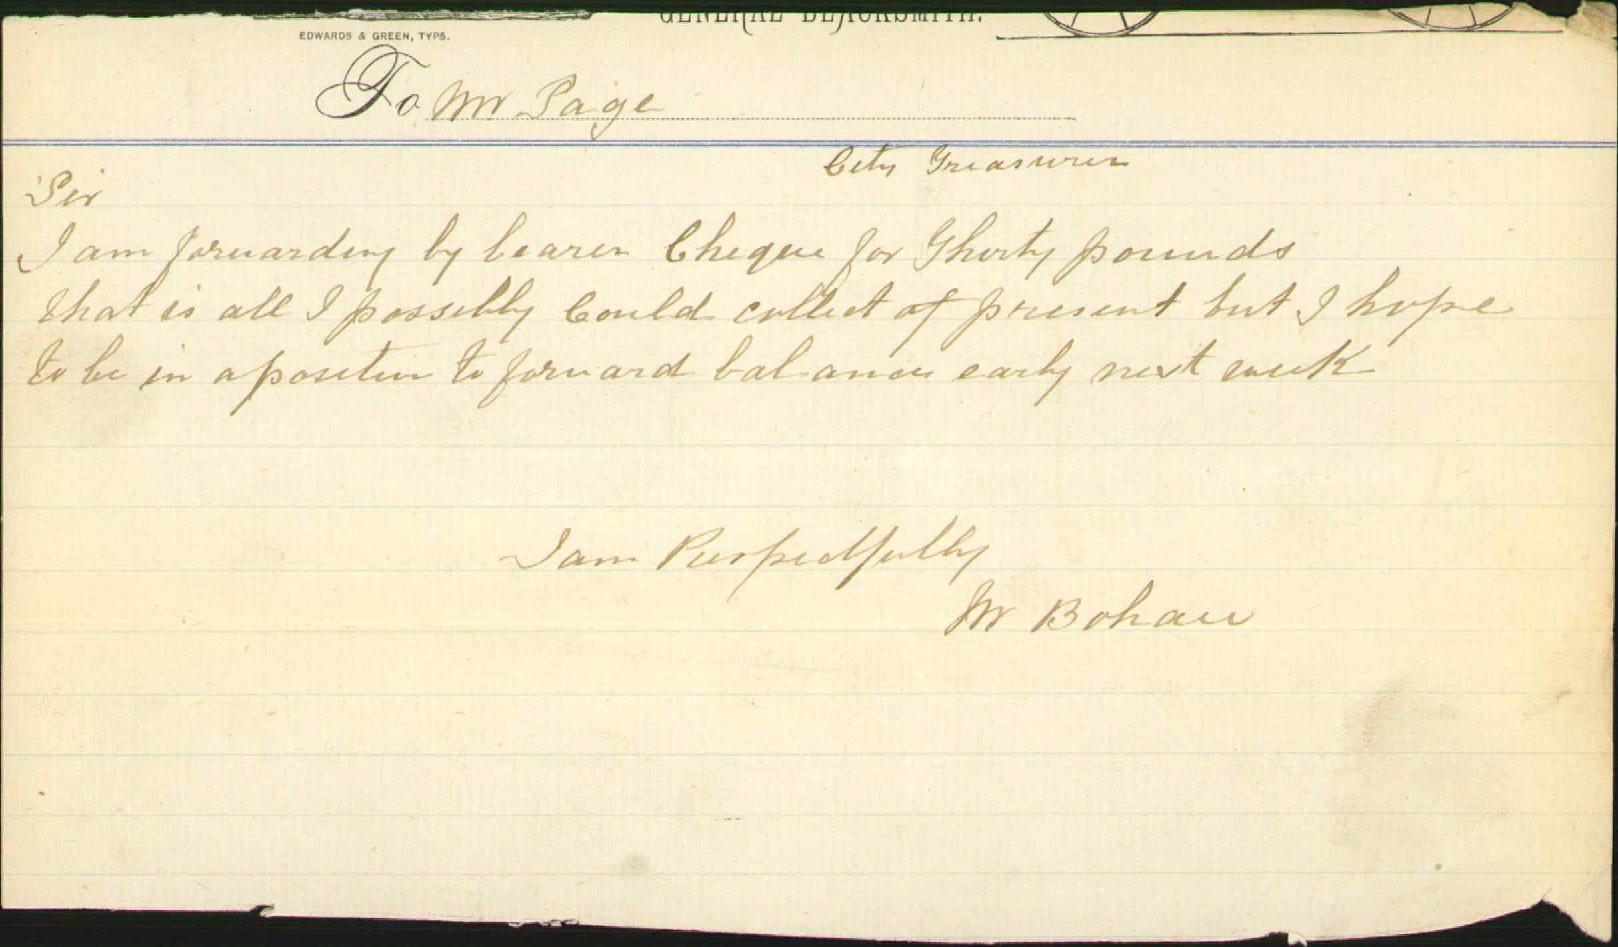 GENERAL BLACKSMITH.
EDWARDS & GREEN, TYPS.
To Mr Page
City Treasurer
Sir
I am forwarding by bearer Cheque for Thirty pounds
that is all I possibly Could collect at present but I hope
to be in a position to forward balance early next week
I am Respectfully
M Bohan